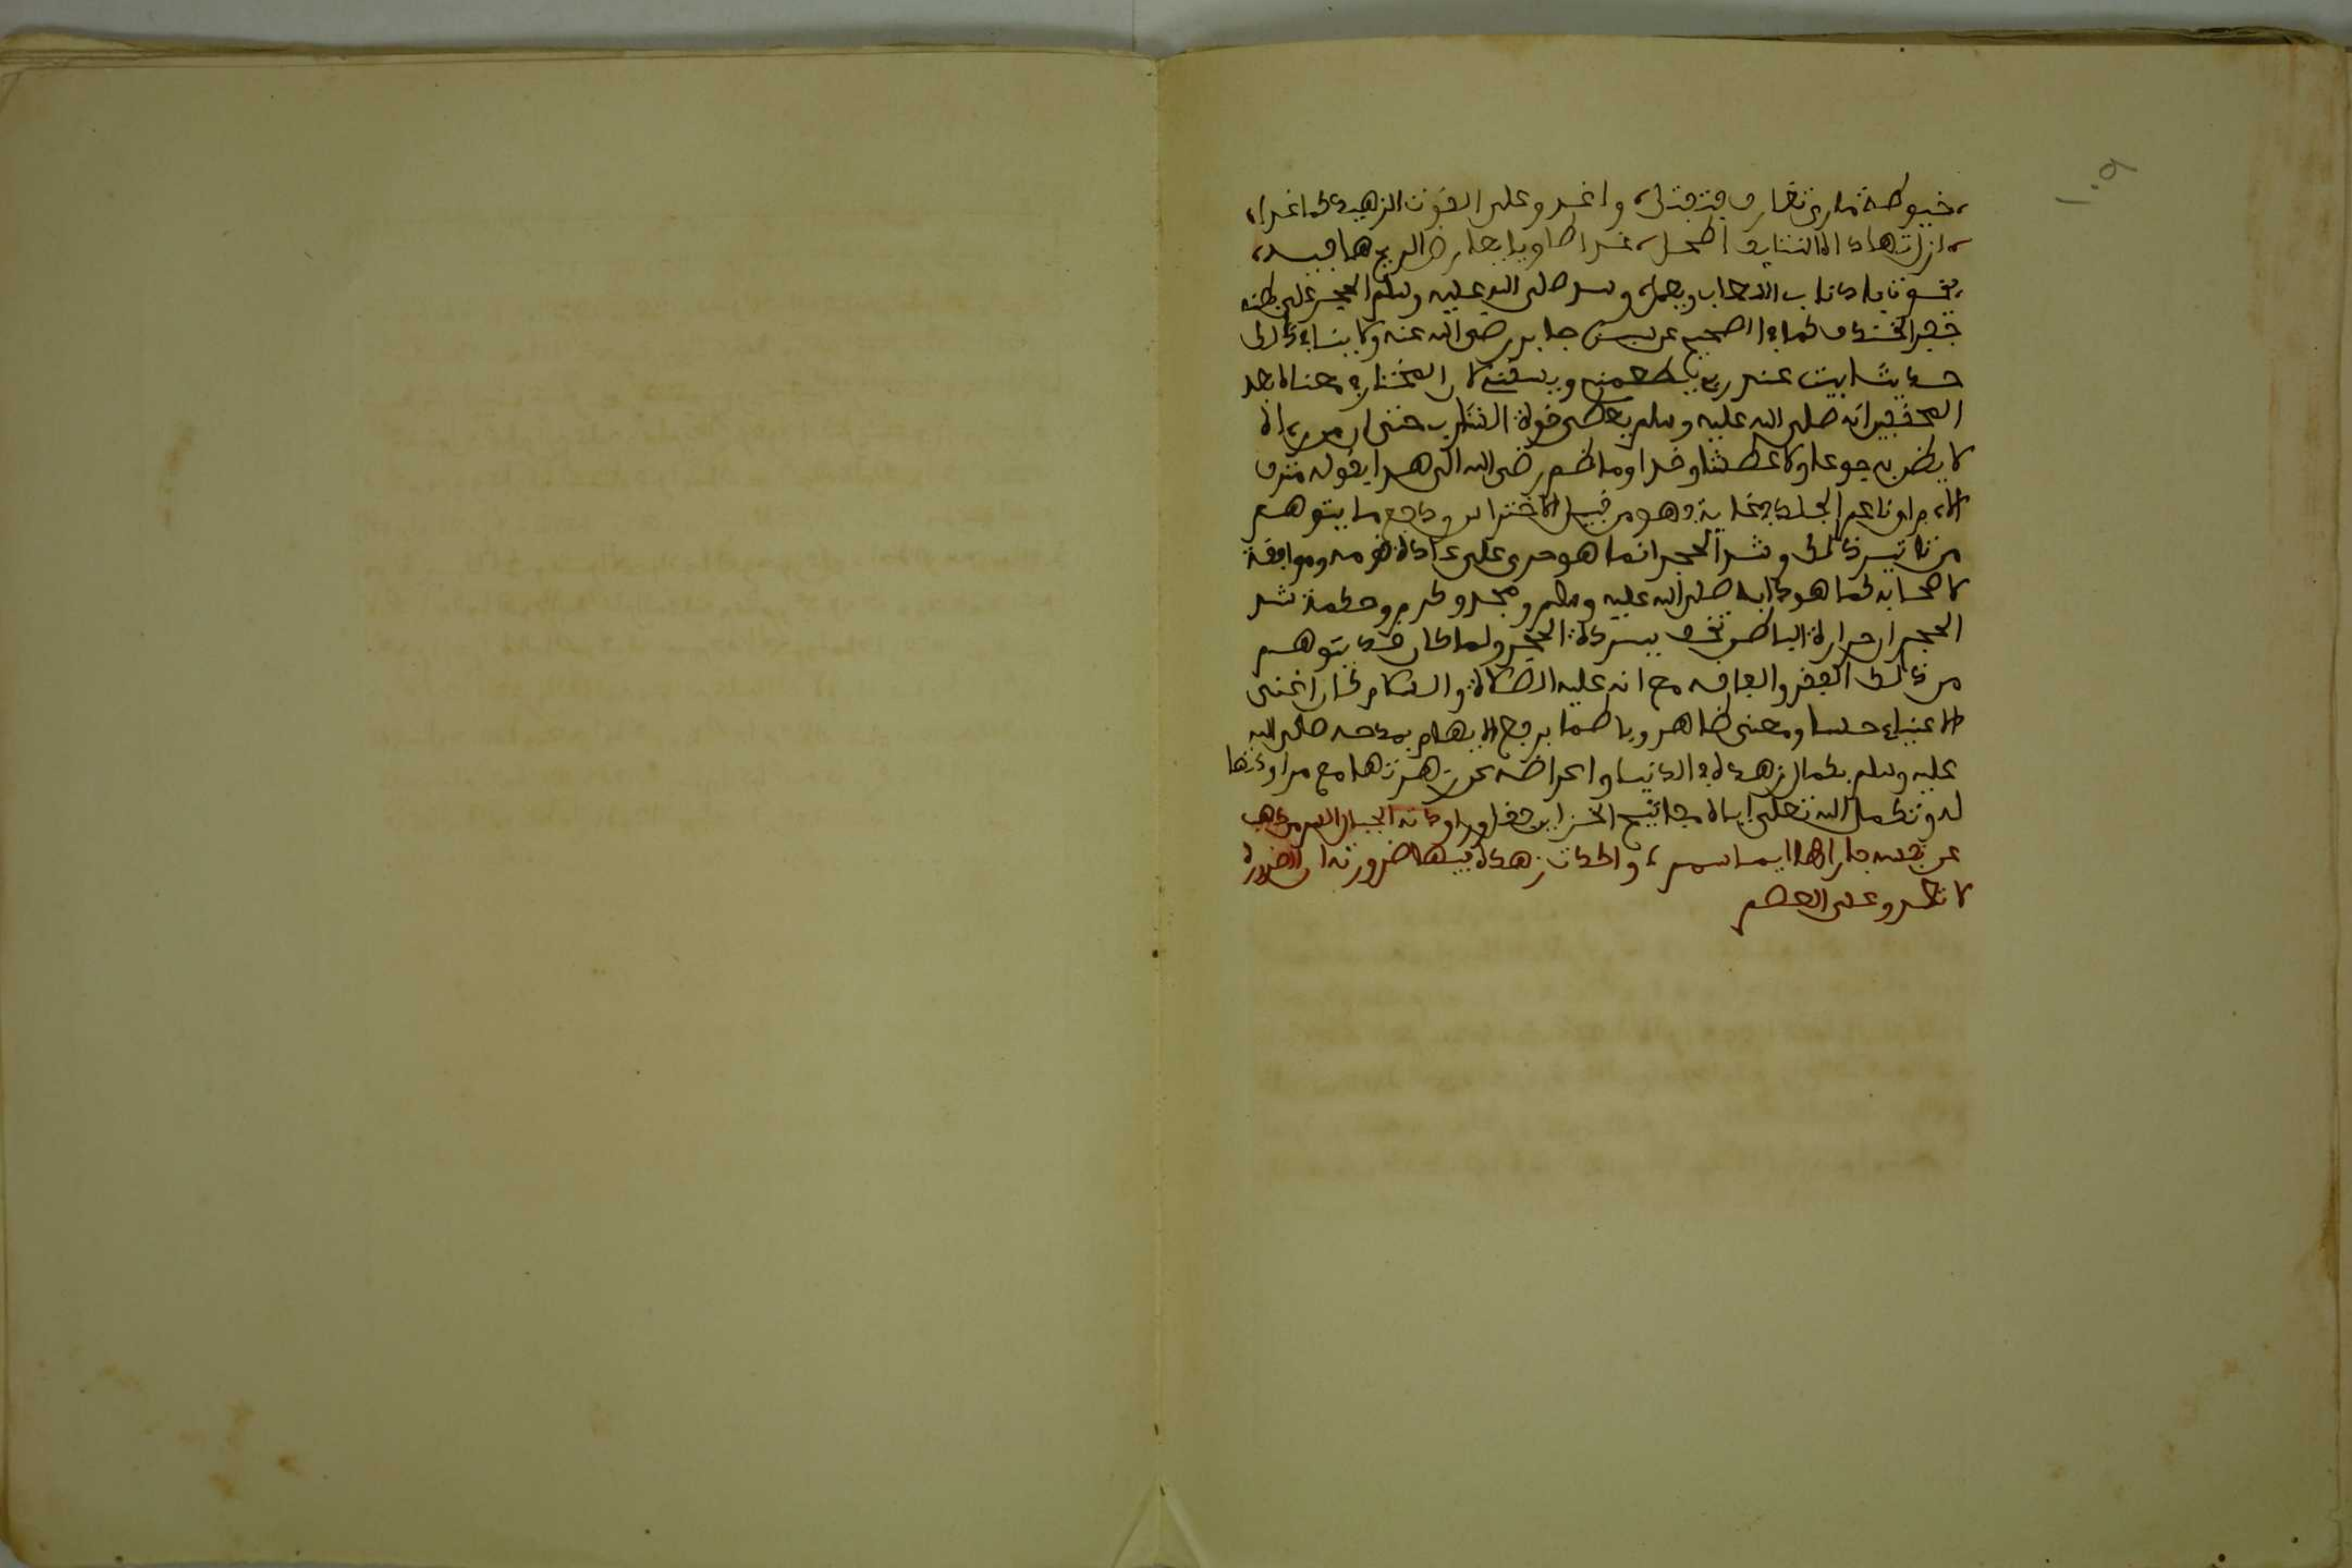 ١٠٩
خيوطة ماري تغار وتفتل، واغدو على القوت الزهيد كما غدا،
ازل تهاداه التنايف اطحل، غدا طاويا يعارض الريح هافيا،
يخوت باذناب الشعاب ويعسل، وشد صلى الله عليه وسلم الحجر على بطنه
حفر الخندق كما في الصحيح عن جابر رضي الله عنه ولا ينافي ذلك
حديث ابيت عند ربي يطعمني ويسقني لان المختار في معناه عند
المحققين انه صلى الله عليه وسلم يعطى قوة الشارب حتى
لا يضر به جوعا ولا عطشا وهذا وما ضم رضي الله الى هذا بقوله مترف
الادم او ناعم الجلد وهو من قبيل الاحتراس ودفع ما يتوهم
من تاثير ذلك وشد الحجر انما هو جرى على عادة قومه وموافقة
لاصحابه كما هو دابه صلى الله عليه وسلم ومجد وكرم وحكمة شد
الحجر ان حرارة الباطن تخف ببردة الحجر ولما كان قد يتوهم
من ذلك الفقر والفاقه مع انه عليه الصلاة والسلام كان اغنى
الاغنياء حسا ومعنى ظاهر وباطنا برفع الايهام بمدحه صلى الله
عليه وسلم بكمال زهده في الدنيا واعراضه عن زهرتها مع مراودتها
له وتكميل الله تعلى اياه مفاتيح الخزاين فقال وراودته الجبال الشم من ذهب
عن نفسه فاراها ايما شمم، واكدت زهده فيها ضرورته ان الضرورة
لا تعدو على العصم